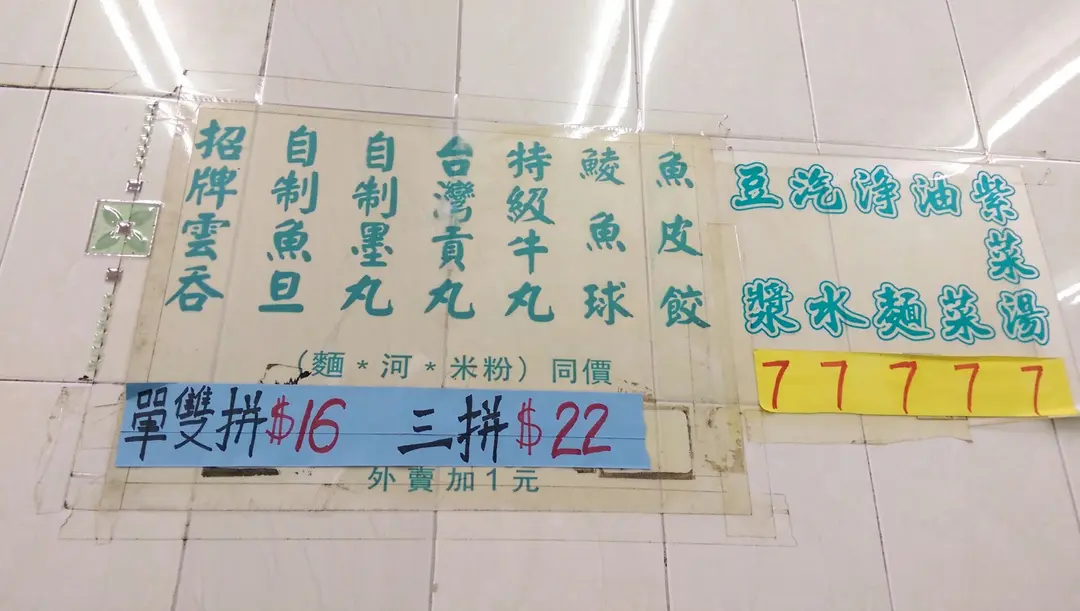 招牌雲吞
自制魚旦
自制墨丸
台灣貢丸
特級牛丸
鯪魚球
魚皮餃
（麵*河*米粉）同價
單雙拼$16 三拼$22
外賣加1元
豆漿
汽水
淨麵
油菜
紫菜湯
7 7 7 7 7